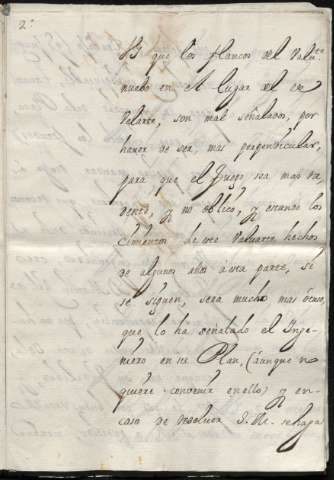 2º
Y que los flancos del Balu.te
nuebo en el lugar del de
Velarte, son mal señalados, por
haver de ser, mas perpendicular,
para que el fuego sea mas
y no oblico, y estando los
Cimientos de este Valuarte hechos
de algunos años à esta parte, si
se siguen, sera mucho mas
que lo ha señalado el Inge-
niero en su Plan, (aunque no
quiere convenir en ello) y en
caso de resolver S. M. se haga